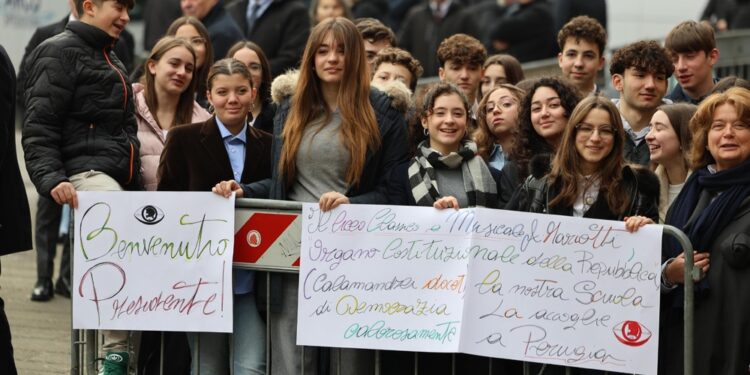 Benvenuto
Presidente!
Il Liceo Classico e Musicale A. Mariotti
Organo Costituzionale della Repubblica
(Calamandrei docet)
la nostra Scuola
di Democrazia
La accoglie
calorosamente
a Perugia